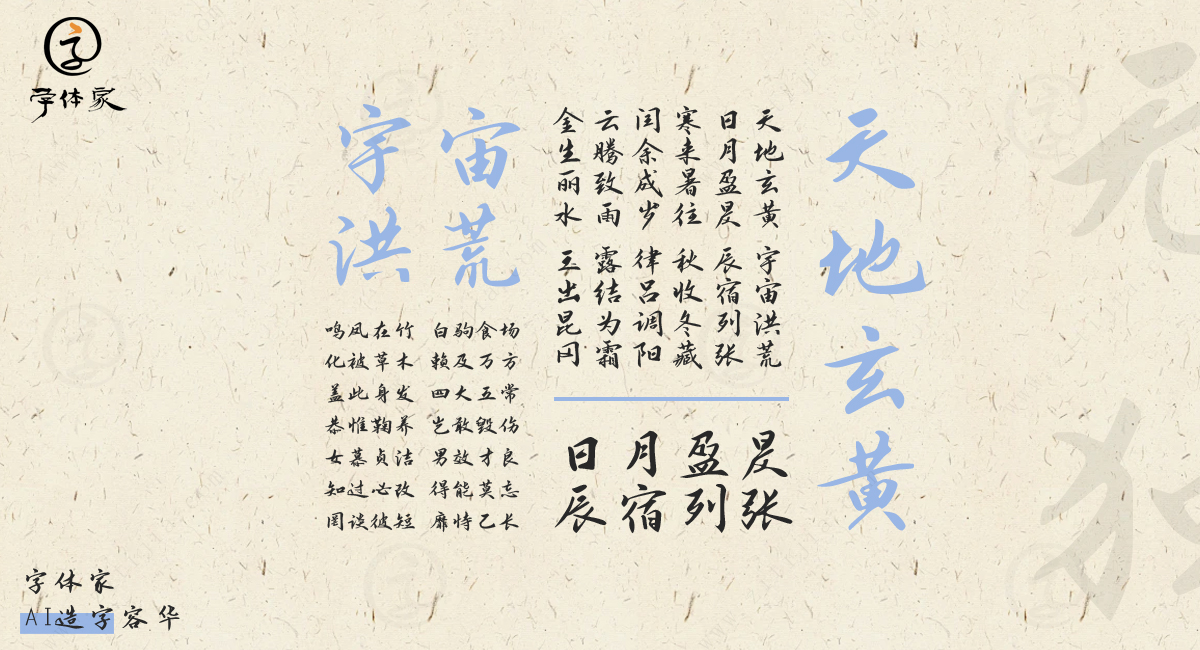 字体家
天地玄黄
天地玄黄 宇宙洪荒
日月盈昃 辰宿列张
寒来暑往 秋收冬藏
闰余成岁 律吕调阳
云腾致雨 露结为霜
金生丽水 玉出昆冈
日月盈昃
辰宿列张
宇宙
洪荒
鸣凤在竹 白驹食场
化被草木 赖及万方
盖此身发 四大五常
恭惟鞠养 岂敢毁伤
女慕贞洁 男效才良
知过必改 得能莫忘
罔谈彼短 靡恃己长
字体家
AI造字容华